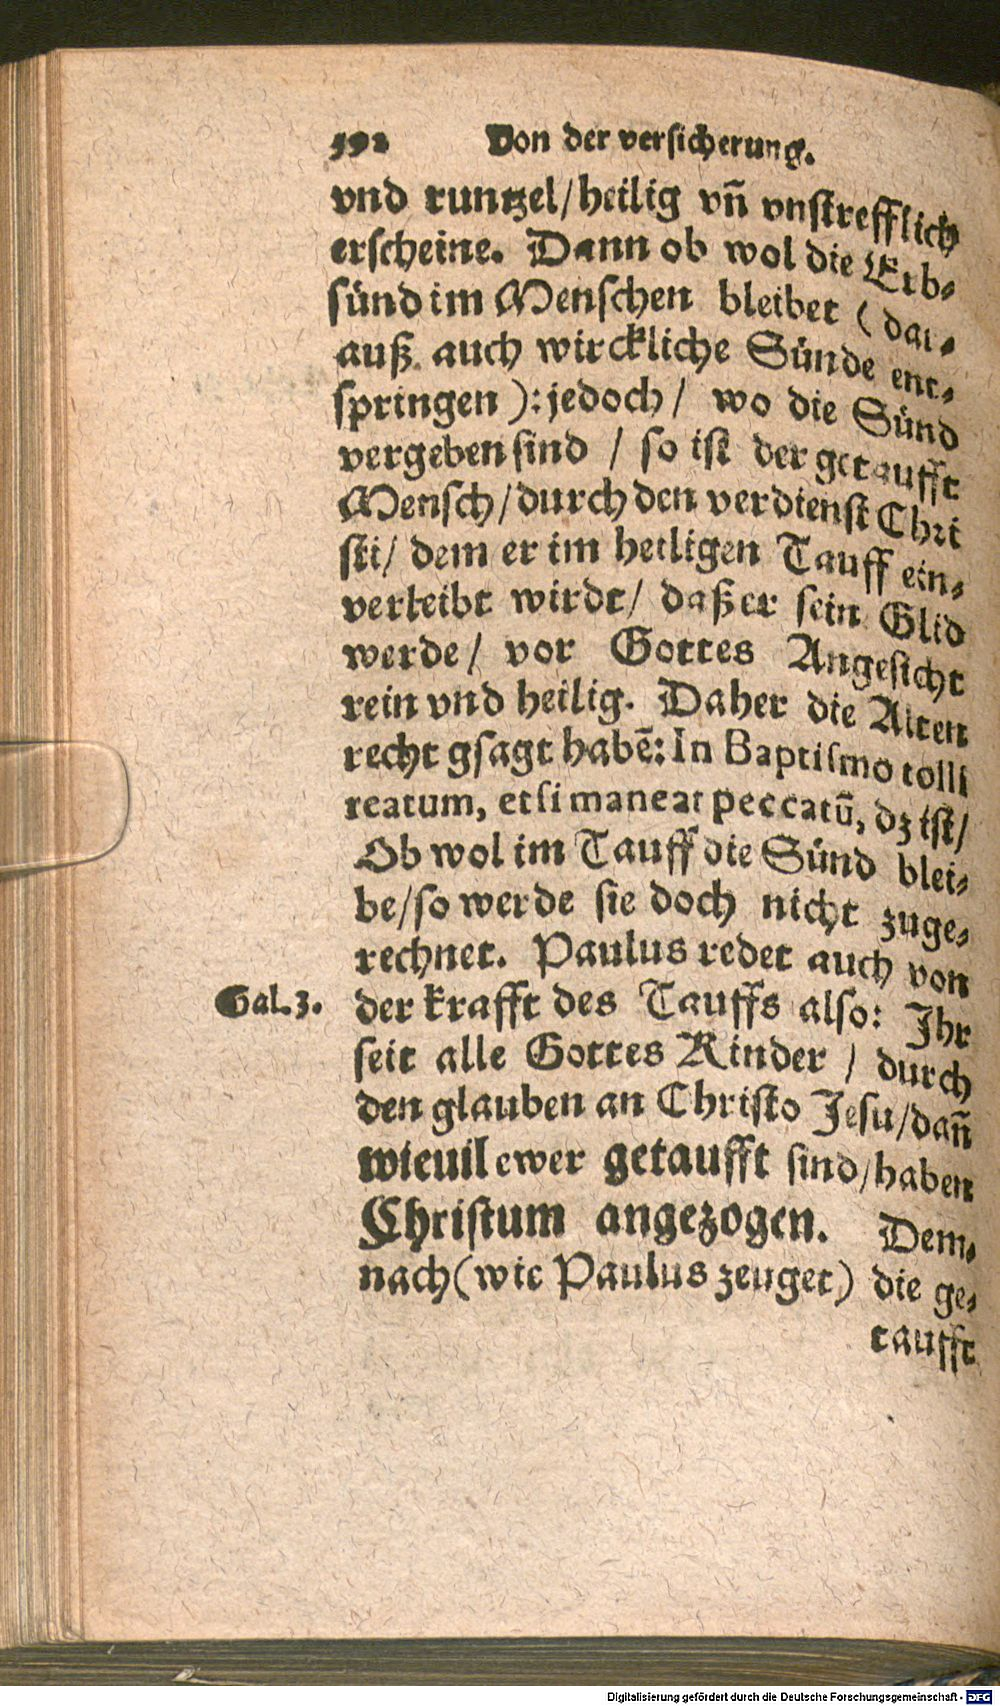 592 Von der versicherung.
vnd runtzel/heilig vñ vnstrefflich
erscheine. Dann ob wol die Erb⸗
sünd im Menschen bleibet (dar⸗
auß auch wirckliche Sünde ent⸗
springen): jedoch/ wo die Sünd
vergeben sind / so ist der getaufft
Mensch/durch den verdienst Chri
sti/ dem er im heiligen Tauff ein⸗
verleibt wirdt/ daß er sein Glid
werde/ vor Gottes Angesicht
rein vnd heilig. Daher die Alten
recht gsagt habẽ: In Baptismo tolli
reatum, etsi maneat peccatũ, dz ist/
Ob wol im Tauff die Sünd blei⸗
be/so werde sie doch nicht zuge⸗
rechnet. Paulus redet auch von
Gal. 3. der krafft des Tauffs also: Ihr
seit alle Gottes Kinder / durch
den glauben an Christo Jesu/dañ
wieuil ewer getaufft sind/haben
Christum angezogen. Dem⸗
nach (wie Paulus zeuget) die ge⸗
taufft
Digitalisierung gefördert durch die Deutsche Forschungsgemeinschaft - DFG